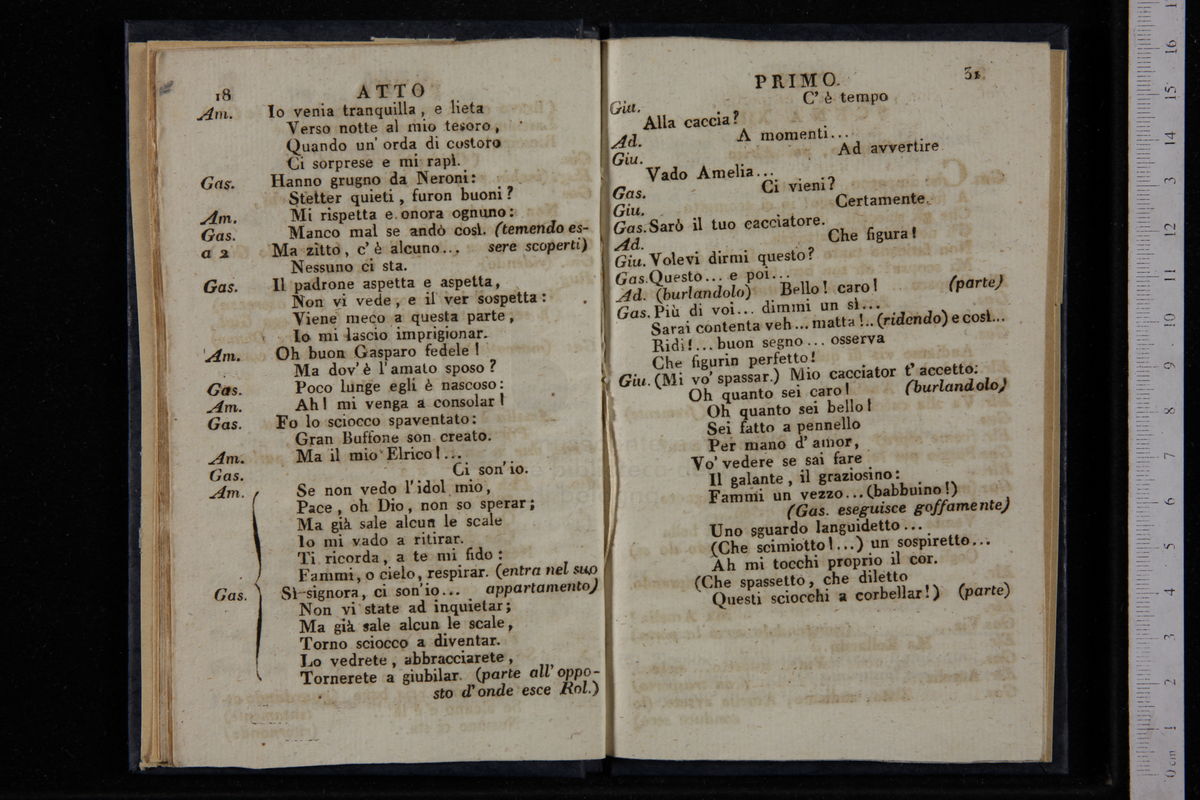 18
ATTO
Am. Io venia tranquilla, e lieta
Verso notte al mio tesoro,
Quando un' orda di costoro
Ci sorprese e mi rapì.
Gas. Hanno grugno da Neroni:
Stetter quieti, furon buoni?
Am. Mi rispetta e onora ognuno:
Gas. Manco mal se andò così. (temendo es-
a 2 Ma zitto, c' è alcuno... sere scoperti)
Nessuno ci sta.
Gas. Il padrone aspetta e aspetta,
Non vi vede, e il ver sospetta:
Viene meco a questa parte,
Io mi lascio imprigionar.
Am. Oh buon Gasparo fedele!
Ma dov' è l'amato sposo?
Gas. Poco lunge egli è nascoso:
Am. Ah! mi venga a consolar!
Gas. Fo lo sciocco spaventato:
Gran Buffone son creato.
Am. Ma il mio Elrico!...
Gas. Ci son' io.
Am. Se non vedo l'idol mio,
Pace, oh Dio, non so sperar;
Ma già sale alcun le scale
Io mi vado a ritirar.
Ti ricorda, a te mi fido:
Fammi, o cielo, respirar. (entra nel suo
Gas. Sì signora, ci son' io... appartamento)
Non vi state ad inquietar;
Ma già sale alcun le scale,
Torno sciocco a diventar.
Lo vedrete, abbracciarete,
Tornerete a giubilar. (parte all' oppo-
sto d'onde esce Rol.)
PRIMO.
31
Giu. C' è tempo
Alla caccia?
Ad. A momenti...
Giu. Ad avvertire
Vado Amelia...
Gas. Ci vieni?
Giu. Certamente.
Gas. Sarò il tuo cacciatore.
Ad. Che figura!
Giu. Volevi dirmi questo?
Gas. Questo... e poi...
Ad. (burlandolo) Bello! caro! (parte)
Gas. Più di voi... dimmi un sì...
Sarai contenta veh... matta!.. (ridendo) e così...
Ridi!... buon segno... osserva
Che figurin perfetto!
Giu. (Mi vo' spassar.) Mio cacciator t' accetto:
Oh quanto sei caro! (burlandolo)
Oh quanto sei bello!
Sei fatto a pennello
Per mano d' amor,
Vo' vedere se sai fare
Il galante, il graziosino:
Fammi un vezzo... (babbuino!)
(Gas. eseguisce goffamente)
Uno sguardo languidetto...
(Che scimiotto!...) un sospiretto...
Ah mi tocchi proprio il cor.
(Che spassetto, che diletto
Questi sciocchi a corbellar!) (parte)
0 cm 1 2 3 4 5 6 7 8 9 10 11 12 13 14 15 16